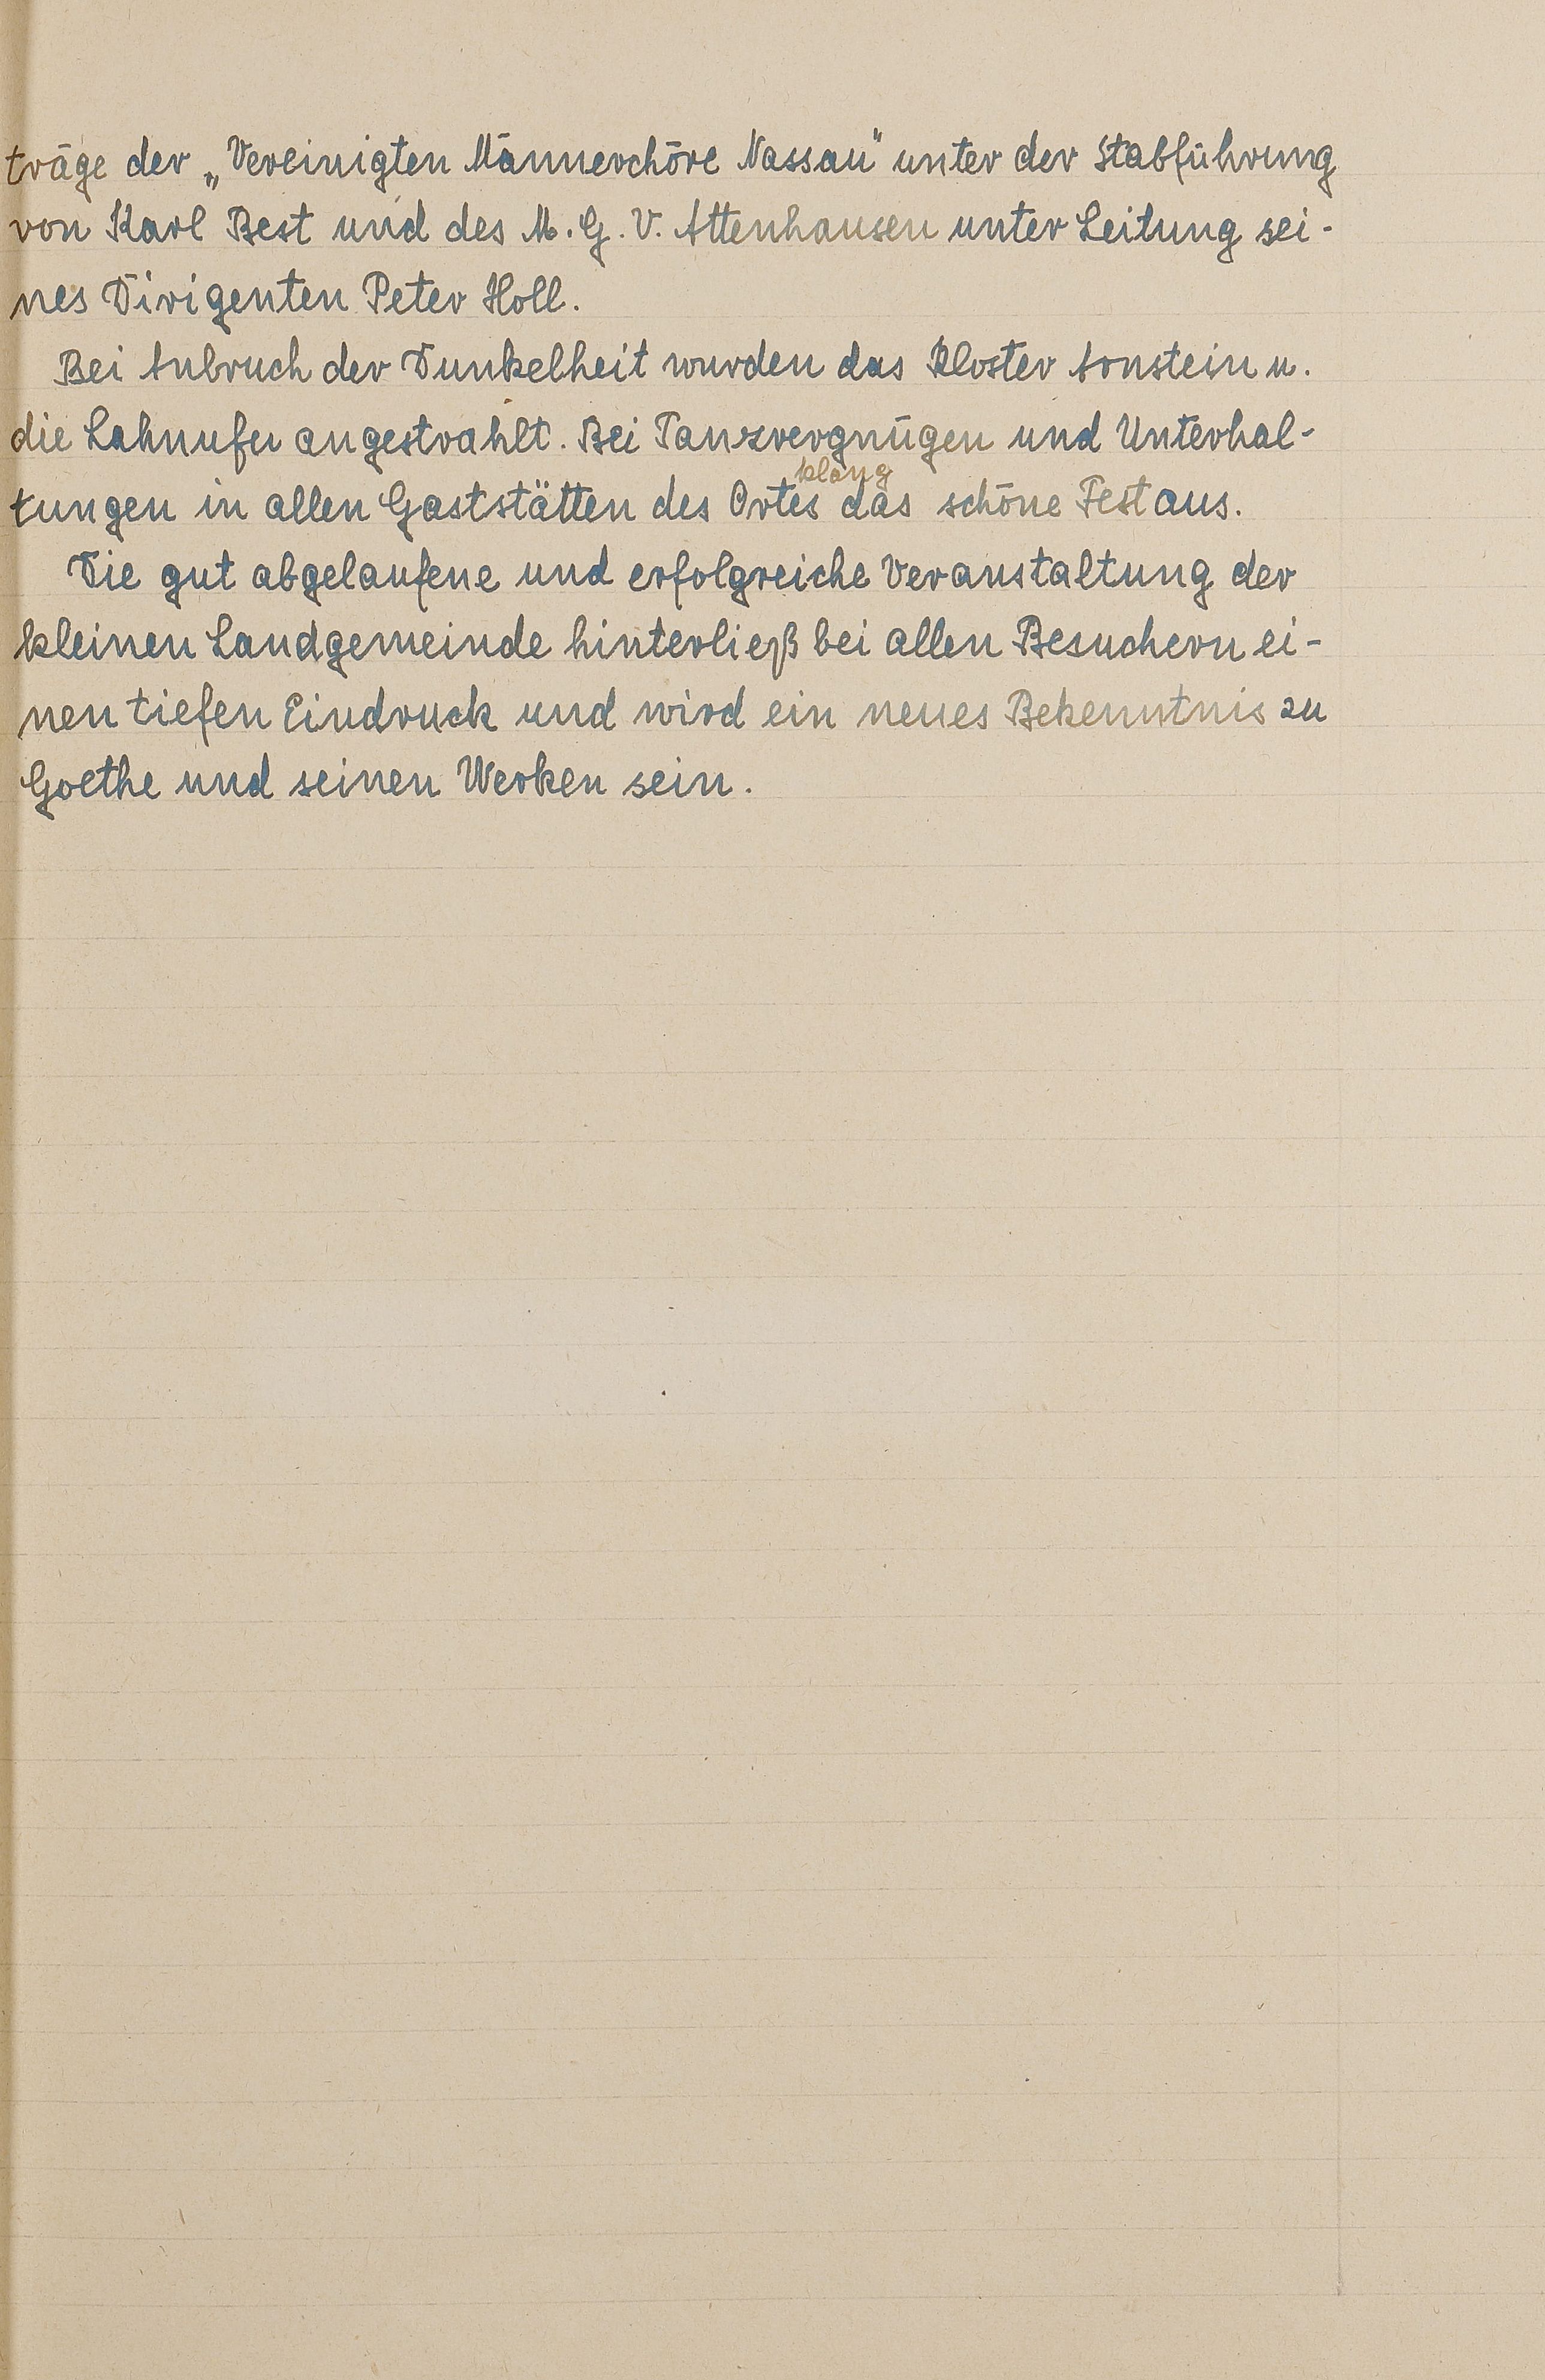 träge der „Vereinigten Männerchöre Nassau" unter der Stabführung
von Karl Best und des M. G. V. Attenhausen unter Leitung sei-
nes Dirigenten Peter Holl.
Bei Anbruch der Dunkelheit wurden das Kloster Arnstein u.
die Lahnufer angestrahlt. Bei Tanzvergnügen und Unterhal-
klang
tungen in allen Gaststätten des Ortes das schöne Fest aus.
Die gut abgelaufene und erfolgreiche Veranstaltung der
kleinen Landgemeinde hinterließ bei allen Besuchern ei-
nen tiefen Eindruck und wird ein neues Bekenntnis zu
Goethe und seinen Werken sein.